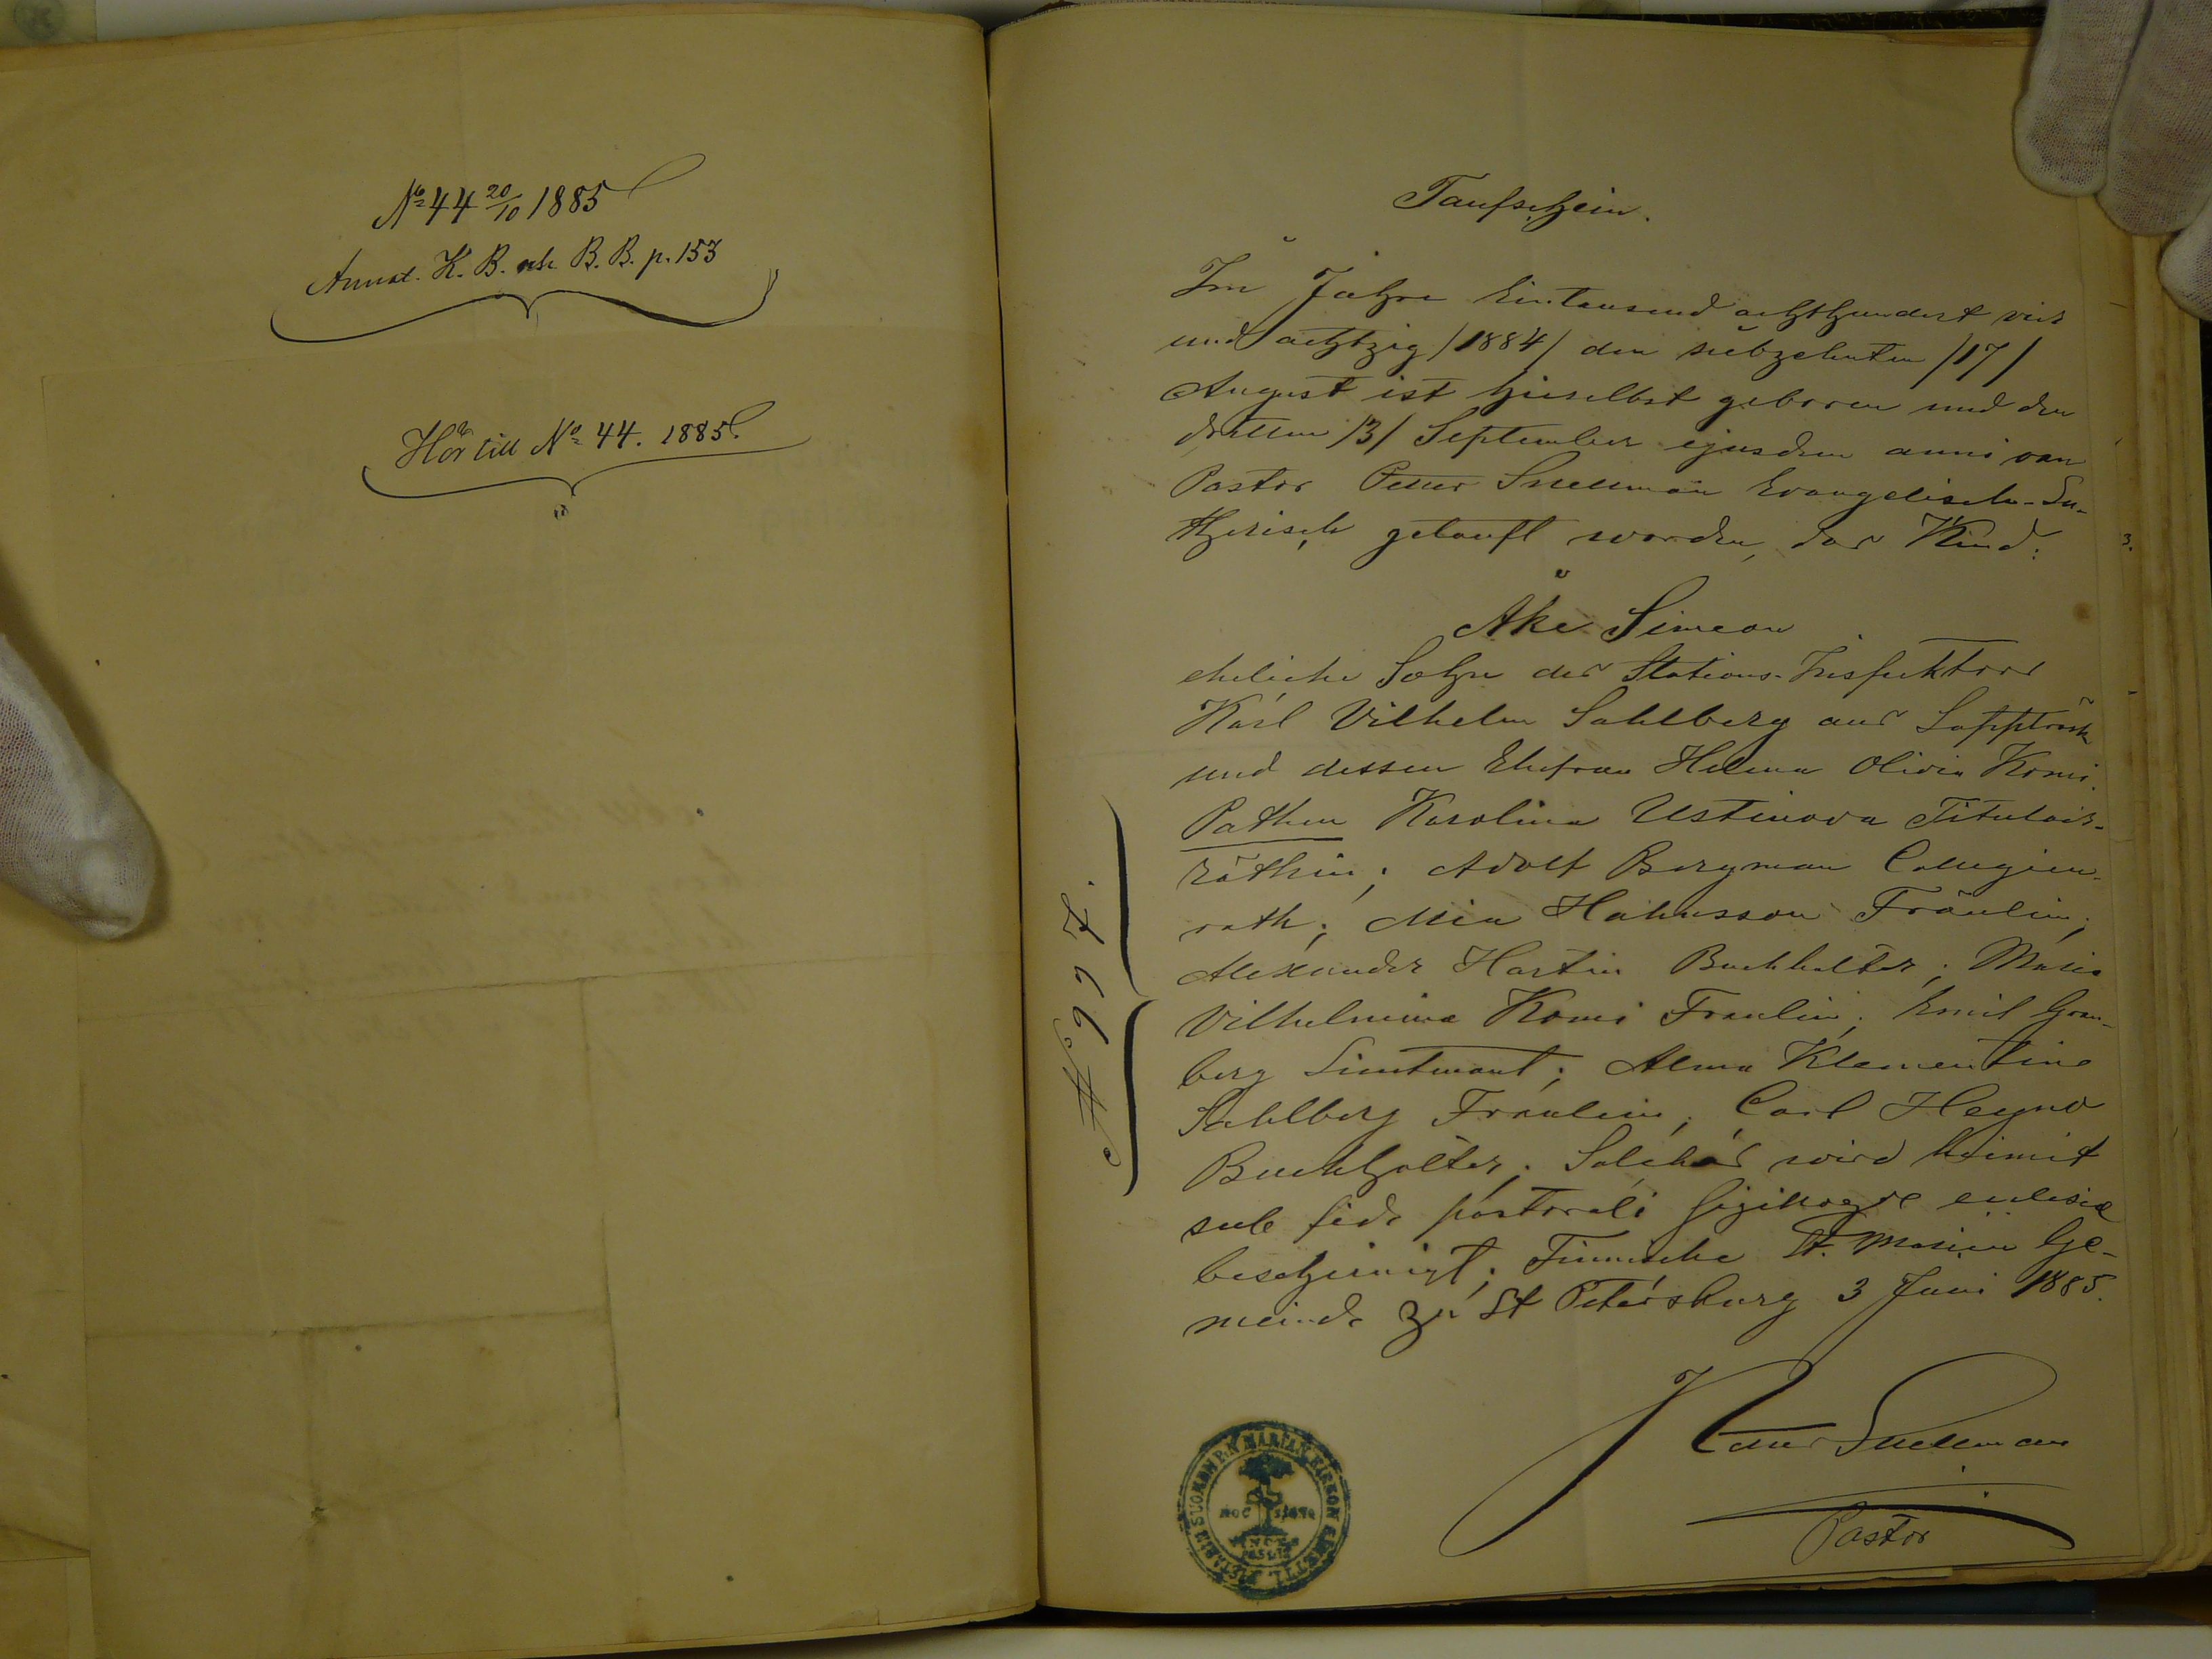 № 44 20/10 1885
Annot. K. B. och B. B. p. 153
Hör till № 44. 1885.
Taufschein.
Im Jahre Eintausend achthundert vier
und achtzig /1884/ den siebzehnten /17/
August ist hierselbst geboren und den
dritten /3/ September ejusdem anni von
Pastor Petter Snellman Evangelisch-Lu-
therisch getauft worden, das Kind:
Åke Simeon
eheliche Sohn des Stations-Inspektors
Karl Vilhelm Sahlberg aus Lappträsk
und dessen Ehefrau Helena Olivia Komi.
Pathen Karolina Ustinova Titulair-
räthin; Adolf Bergman Collegien-
rath; Mia Hahnsson Fräulein;
Alexander Hartin Buchhalter; Maria
Vilhelmina Komi Fraulein; Emil Gran-
berg Lieutenant; Alma Klementine
Sahlberg Fraulein; Carl Heyno
Buchhalter. Solches wird hiermit
sub fide pastorali ecclesiæ
bescheinigt; Finnische St. Marien Ge-
meinde zu St Petersburg 3 Juni 1885.
№ 997.
Petter Snellman
Pastor
SUOMEN MARIAN KIRKON
HOC